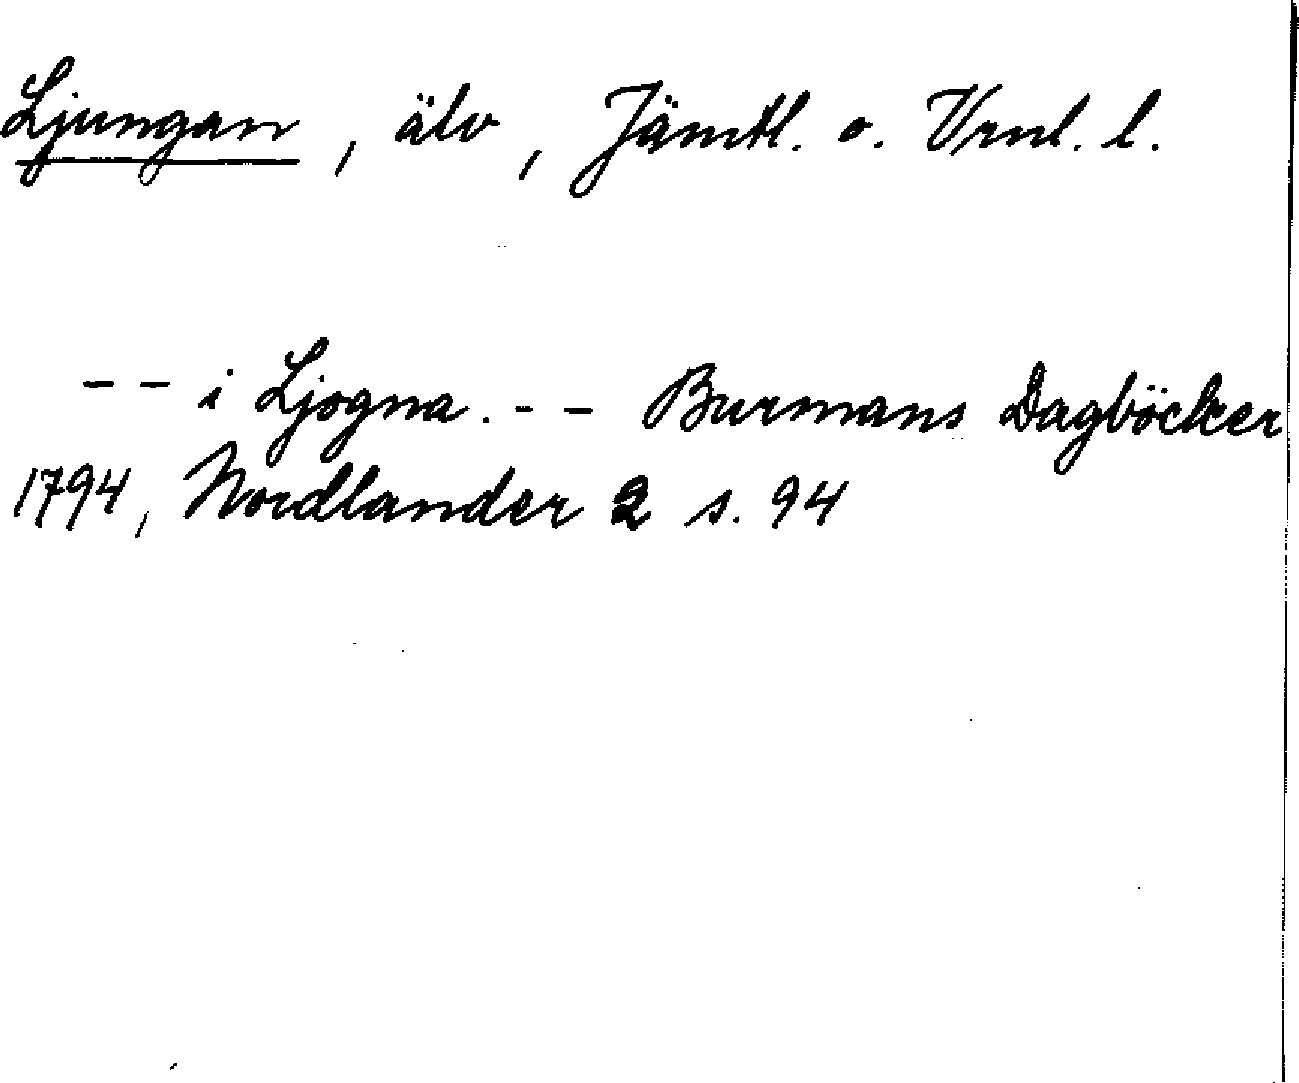 Ljungan, älv, Jämtl. o. Vrnl. l.
-- i Ljogna. -- Burmans Dagböcker
1794, Nordlander 2 s. 94